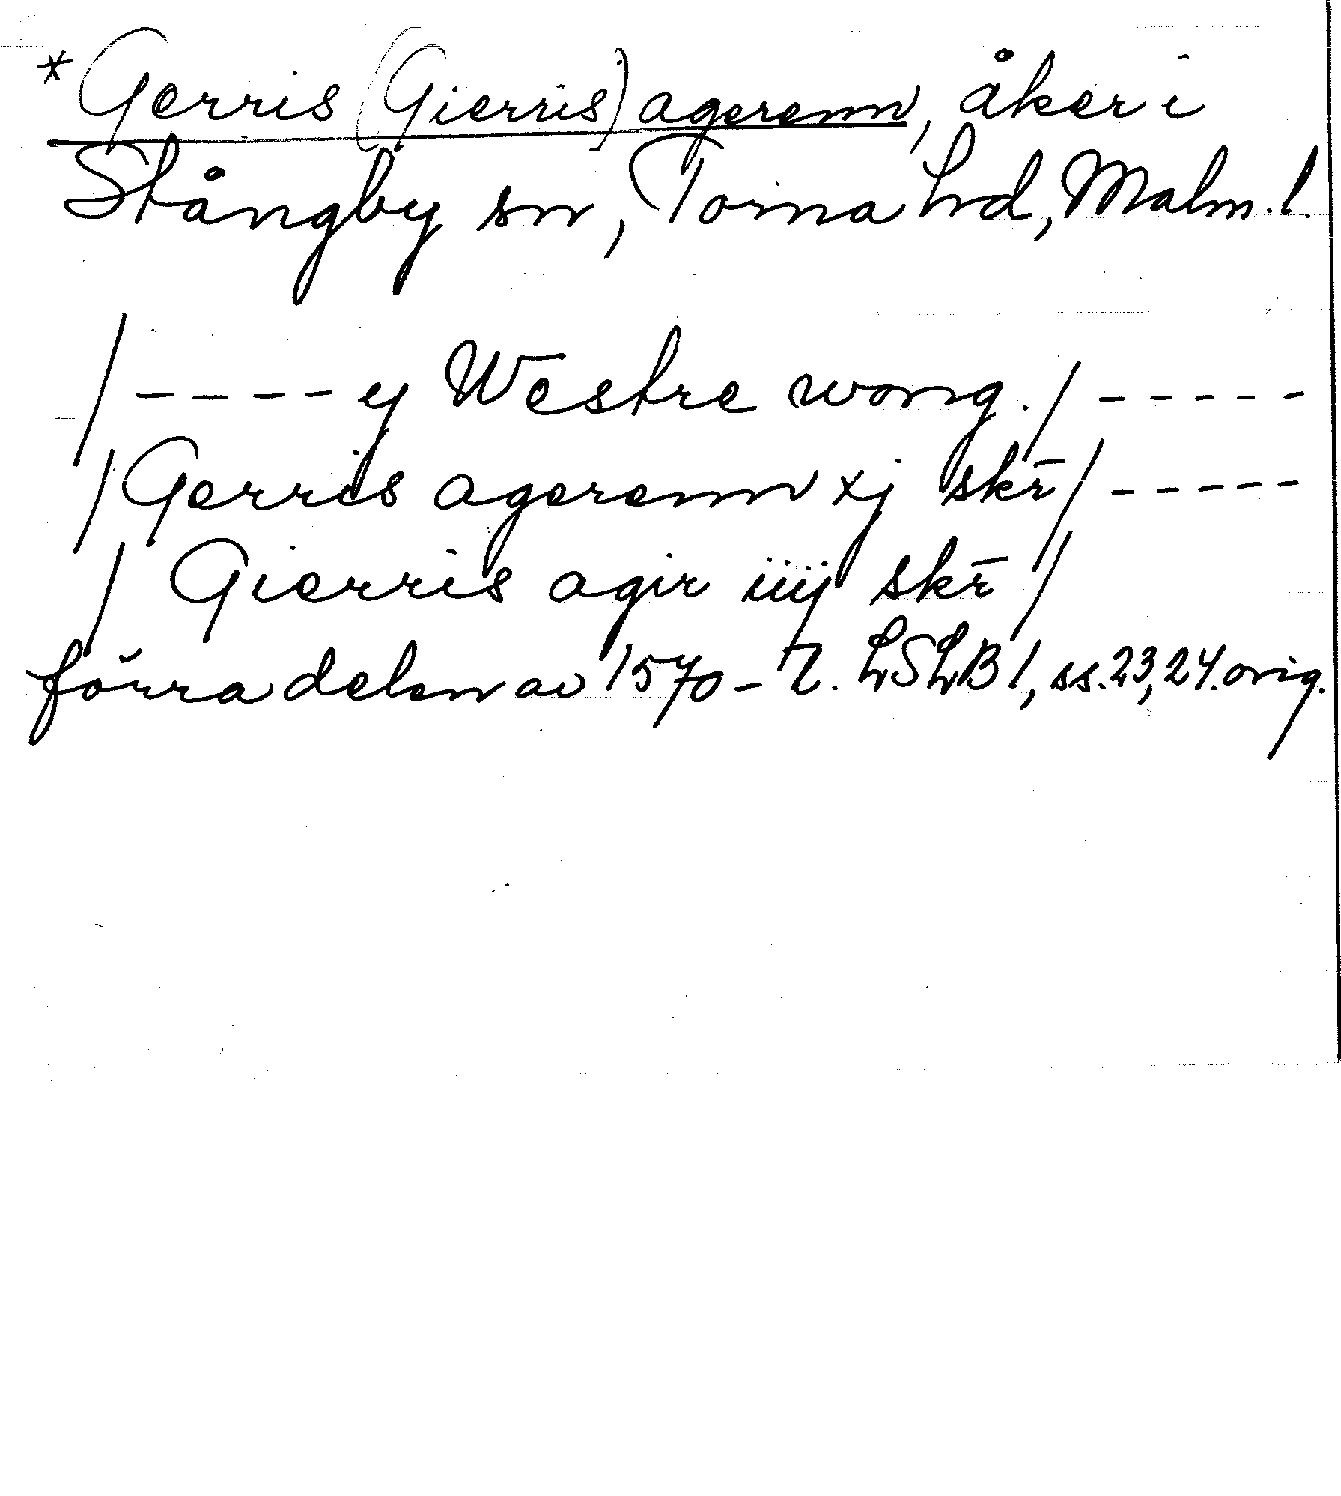 * Gerris (Gierris) agerenn, åker i
Stångby sn, Torna hd, Malm. l.
/ - - - - ij Westre wong. / - - - - -
/ Gerris agerenn xj skr̄ / - - - - -
/ Gierris agir iiij skr̄ /
förra delen av 1570-t. LSLB 1, ss. 23, 24. orig.